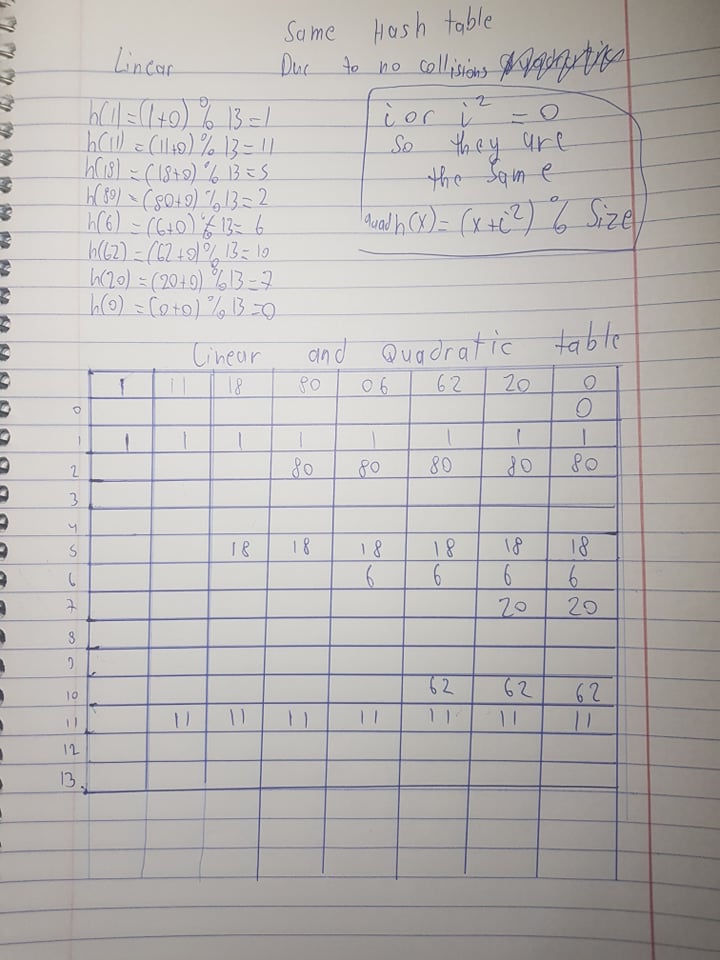 Same Hash table
Linear Due to no collisions
h(1)=(1+0) % 13=1
h(11)=(11+0)% 13=11
h(18)=(18+0)% 13=5
h(80)=(80+0)% 13=2
h(6)=(6+0) % 13=6
h(62)=(62+0)% 13=10
h(20)=(20+0)% 13=7
h(0)=(0+0) % 13=0
i or i² = 0
so they are
the same
quad h(x)=(x+i²) % Size
Linear and Quadratic table
1 11 18 80 06 62 20 0
0 0
1 1 1 1 1 1 1 1 1
2 80 80 80 80 80
3
4
5 18 18 18 18 18 18
6 6 6 6 6
7 20 20
8
9
10 62 62 62
11 11 11 11 11 11 11 11
12
13